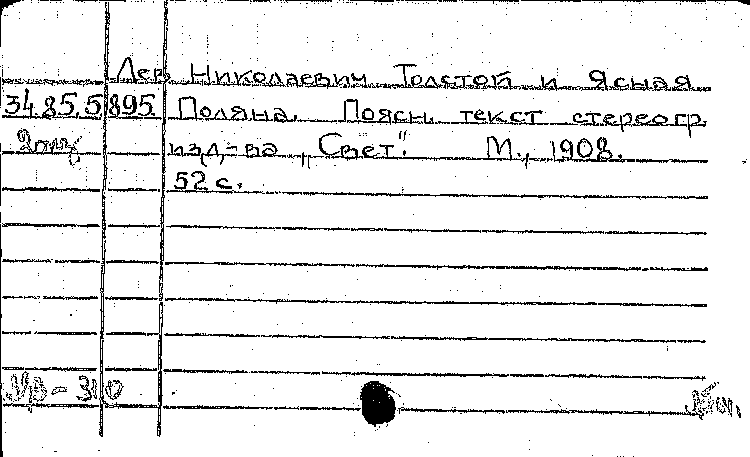 Лев Николаевич Толстой и Ясная
34.85.5 895 Поляна. Поясн. текст стереогр.
изд-ва „Свет". М., 1908.
52 с.